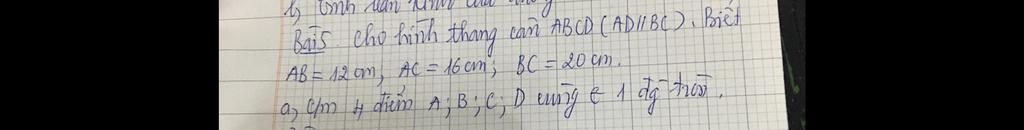 b, tính bán kính của
Bài 5. cho hình thang cân ABCD (AD//BC). Biết
AB = 12 cm, AC = 16 cm; BC = 20 cm.
a, c/m 4 điểm A; B; C; D cùng ∈ 1 đg tròn.